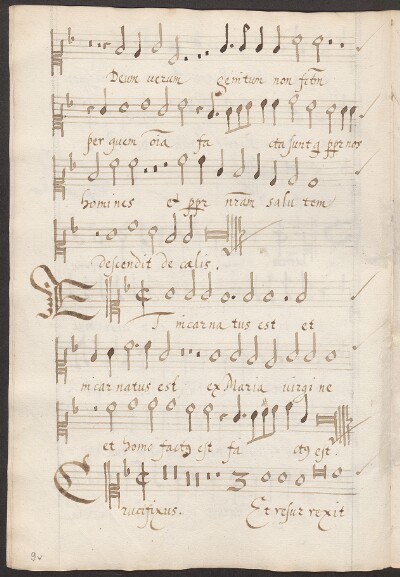 Deum verum genitum non fctm
per quem oia fa cta sunt q ppr nos
homines et ppr nram salu tem
descendit de cœlis.
ET incarna tus est et
incar natus est ex Maria virgi ne
et homo factꝯ est fa ctꝯ est.
Crucifixus. Et resur rexit
9v